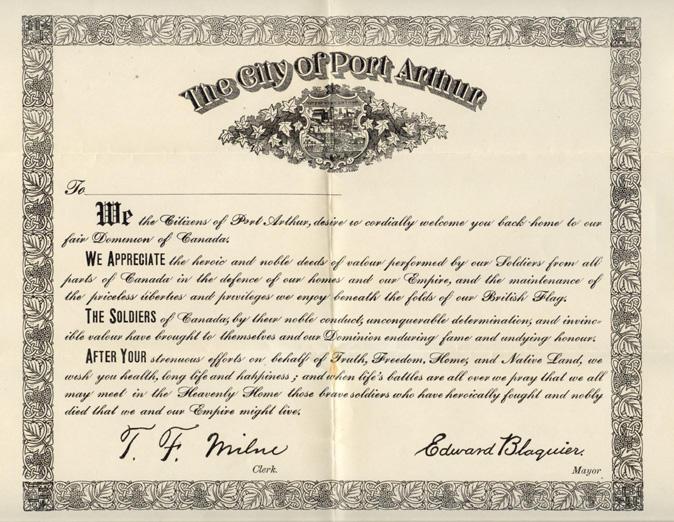 The City of Port Arthur
To
We the Citizens of Port Arthur, desire to cordially welcome you back home to our
fair Dominion of Canada.
WE APPRECIATE the heroic and noble deeds of valour performed by our Soldiers from all
parts of Canada in the defence of our homes and our Empire, and the maintenance of
the priceless liberties and privileges we enjoy beneath the folds of our British Flag.
THE SOLDIERS of Canada, by their noble conduct, unconquerable determination, and invinc-
ible valour have brought to themselves and our Dominion enduring fame and undying honour.
AFTER YOUR strenuous efforts on behalf of Truth, Freedom, Home, and Native Land, we
wish you health, long life and happiness; and when life's battles are all over we pray that we all
may meet in the Heavenly Home those brave soldiers who have heroically fought and nobly
died that we and our Empire might live.
T. F. Milne Edward Blaquier.
Clerk. Mayor